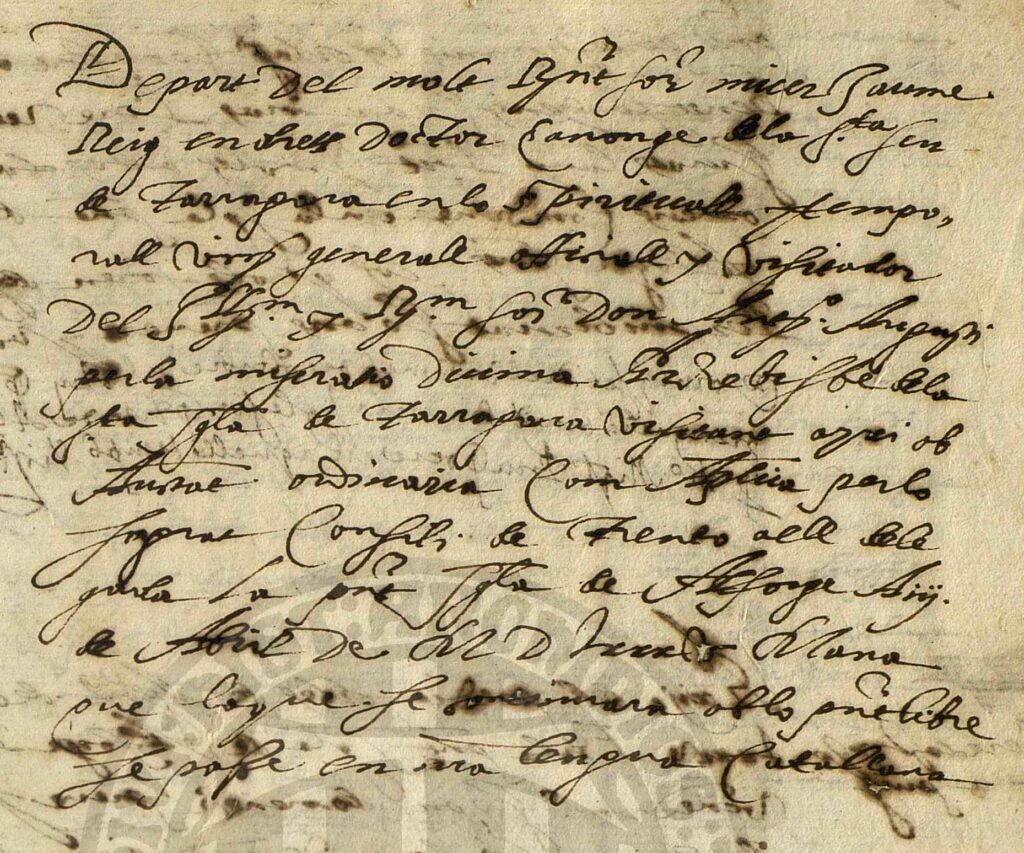 Depart del molt Rnt sor micer Jaume
Reig en drets doctor Canonge dela sta seu
de Tarragona en lo spirituall y tempo,
rall vicj generall officiall y visitador
del Illm y Rm sor Don Anto. Augusti
per la miseratio divina Archebisbe dela
sta Igla de Tarragona visitant axi ab
ordinaria Com Aplica per lo
Consili de Trento a ell dele
gada La pnt Igla de Alforge A iij.
de Abril de M D Mana
que lo que se continuara ab lo pnt libre
se pose en nra lengua Catallana